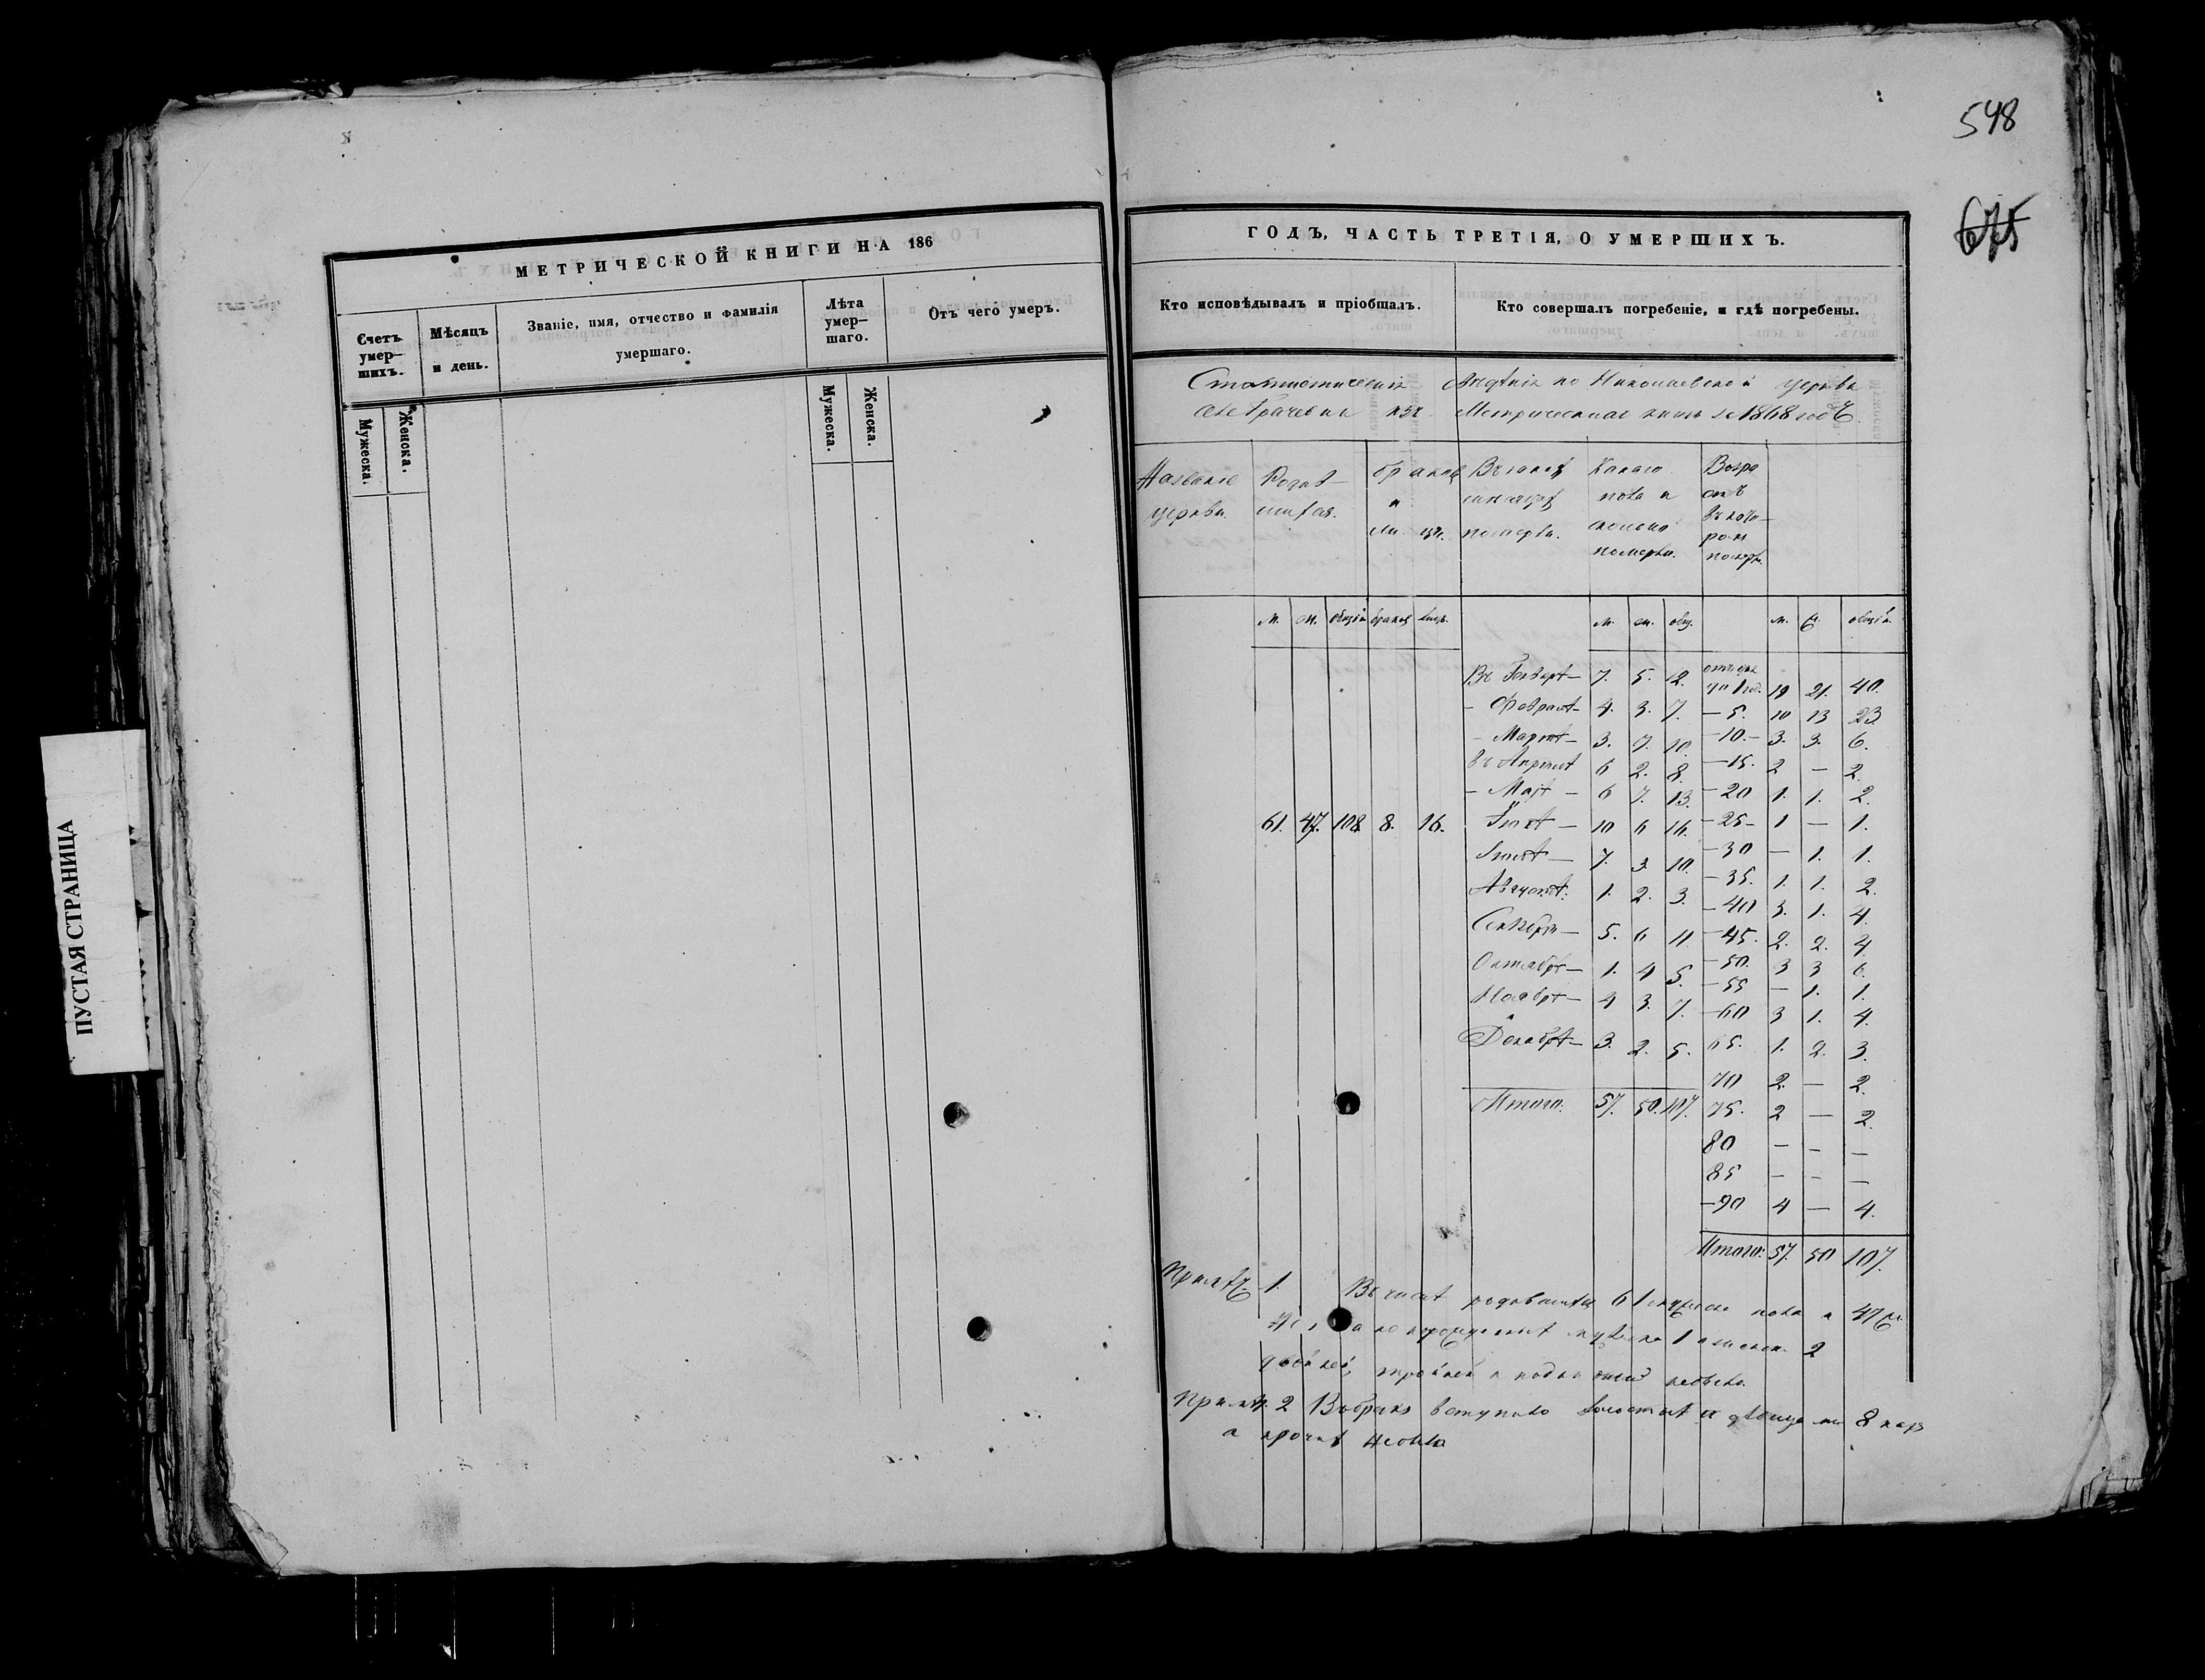 548
675
ПУСТАЯ СТРАНИЦА
МЕТРИЧЕСКОЙ КНИГИ НА 186
Счетъ умер- шихъ.
Мѣсяцъ и день.
Званіе, имя, отчество и фамилія умершаго.
Лѣта умер- шаго.
Отъ чего умеръ.
Мужеска.
Женска.
Мужеска.
Женска.
ГОДЪ, ЧАСТЬ ТРЕТІЯ, О УМЕРШИХЪ.
Кто исповѣдывалъ и пріобщалъ.
Кто совершалъ погребеніе, и гдѣ погребены.
Статистическія свѣдѣнія по Николаевской церкви
села Грачевки изъ Метрическихъ книгъ за 1868 годъ.
Названіе церкви.
Родив- шихся.
браков и лицъ.
Въ какихъ мѣсяцахъ померли.
Какаго пола и сколько померли.
Возра стъ въ кото- ромъ померли.
м. ж. общій браковъ лицъ.
м. ж. общ.
м. ж. общій.
61. 47. 108 8. 16.
Въ Генварѣ — 7. 5. 12.
— Февралѣ — 4. 3. 7.
— Мартѣ — 3. 7. 10.
въ Апрѣлѣ 6 2. 8.
— Маѣ — 6 7. 13.
Іюнѣ — 10 6 16.
Іюлѣ — 7. 3. 10.
Августѣ. 1. 2. 3.
Сентябрѣ — 5. 6 11
Октябрѣ — 1. 4 5.
Ноябрѣ — 4 3. 7.
Декабрѣ — 3. 2. 5.
Итого. 57. 50. 107.
до 1 год. 19 21. 40.
— 5. 10 13 23
— 10. — 3. 3. 6.
— 15. 2 — 2.
— 20 1. 1. 2.
— 25 — 1 — 1.
— 30 — 1. 1.
— 35. 1. 1. 2.
— 40 3. 1. 4.
— 45. 2. 2. 4
— 50. 3 3 6.
— 55 — 1. 1.
— 60 3 1. 4.
65. 1. 2. 3.
70 2. — 2.
75. 2 — 2.
80 — — —
85 — — —
— 90 4 — 4.
Итого: 57. 50 107.
Примѣч. 1. Въ числѣ родившихся 61 мужеска пола и 47 ж.
мужеска 1 и женска 2
двойней, тройней и подкидышей небыло
Примѣч. 2 Въ бракъ вступило холостыхъ и дѣвицами 8 паръ
а прочихъ небыло